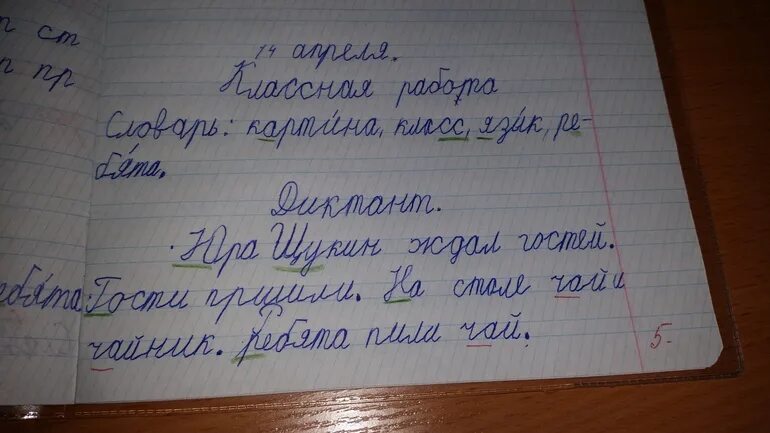 п ст
п пр
14 апреля.
Классная работа
Словарь: картина, класс, язик, ре-
бята.
Диктант.
Юра Щукин ждал гостей.
Гости пршили. На столе чай и
чайник. Ребята пили чай.
ебята
5-